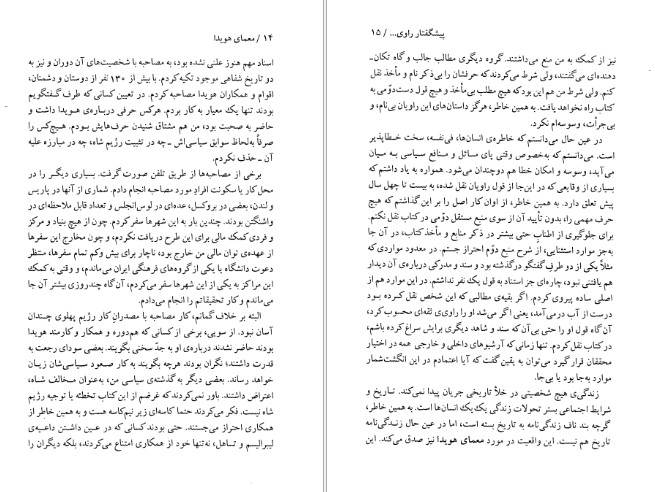 ۱۴ / معمای هویدا
اسناد مهم هنوز علنی نشده بود، به مصاحبه با شخصیت‌های آن دوران و نیز به
دو تاریخ شفاهی موجود تکیه کردم. با بیش از ۱۳۰ نفر از دوستان و دشمنان،
اقوام و همکاران هویدا مصاحبه کردم. در تعیین کسانی که طرف گفتگویم
بودند تنها یک معیار به کار بردم. هرکس حرفی درباره‌ی هویدا داشت و
حاضر به صحبت بود، من هم مشتاق شنیدن حرف‌هایش بودم. هیچ‌کس را
صرفاً به‌لحاظ سوابق سیاسی‌اش ـ چه در تثبیت رژیم شاه، چه در مبارزه علیه
آن ـ حذف نکردم.
برخی از مصاحبه‌ها از طریق تلفن صورت گرفت. بسیاری دیگر را در
محل کار یا سکونت افراد مورد مصاحبه انجام دادم. شماری از آنها در پاریس
و لندن، بعضی در بروکسل، عده‌ای در لوس‌آنجلس و تعداد قابل ملاحظه‌ای در
واشنگتن بودند. چندین بار به این شهرها سفر کردم. چون از هیچ بنیاد و مرکز
و فردی کمک مالی برای این طرح دریافت نکردم، و چون مخارج این سفرها
از عهده‌ی توان مالی من خارج بود، ناچار برای پیش و کم تمام سفرها، منتظر
دعوت دانشگاه یا یکی از گروه‌های فرهنگی ایران می‌ماندم، و وقتی به کمک
این مراکز به یکی از این شهرها سفر می‌کردم، آن‌گاه چند روزی بیشتر آن جا
می‌ماندم و کار تحقیقاتم را انجام می‌دادم.
البته برخلاف گمانم، کار مصاحبه با مصدران کار رژیم پهلوی چندان
آسان نبود. از سویی، برخی از کسانی که هم‌دوره و همکار و کارمند هویدا
بودند حاضر نشدند درباره‌ی او به جدّ سخنی بگویند. بعضی سودای رجعت به
قدرت داشتند؛ نگران بودند هرچه بگویند به کار صعود سیاسی‌شان زیان
خواهد رساند. بعضی دیگر به گذشته‌ی سیاسی من، به‌عنوان مخالف شاه،
اعتراض داشتند. باور نمی‌کردند که غرضم از این کتاب تخطئه یا توجیه رژیم
شاه نیست. فکر می‌کردند حتما کاسه‌ای زیر نیم‌کاسه هست و به همین خاطر از
همکاری احتراز می‌جستند. حتی بودند کسانی که در عین داشتن داعیه‌ی
لیبرالیسم و تساهل، نه‌تنها خود از همکاری امتناع می‌کردند، بلکه دیگران را
پیشگفتار راوی... / ۱۵
نیز از کمک به من منع می‌داشتند. گروه دیگری مطالب جالب و گاه تکان‌ـ
دهنده‌ای می‌گفتند، ولی شرط می‌کردند که حرفشان را بی‌ذکر نام و مأخذ نقل
کنم. ولی شرط من هم این بود که هیچ مطلب بی‌مأخذ و هیچ قول دست دوّمی به
کتاب راه نخواهد یافت. به همین خاطر، هرگز داستان‌های این راویان بی‌نام، و
بی‌جرأت، وسوسه‌ام نکرد.
در عین حال می‌دانستم که خاطره‌ی انسان‌ها، فی‌نفسه، سخت خطاپذیر
است. می‌دانستم که به‌خصوص وقتی پای مسائل و منافع سیاسی به میان
می‌آید، وسوسه و امکان خطا هم دوچندان می‌شود. همواره به یاد داشتم که
بسیاری از وقایعی که در این‌جا از قول راویان نقل شده، به بیست تا چهل سال
پیش تعلق دارد. به همین خاطر، از اوان کار اصل را بر این گذاشتم که هیچ
حرف مهمی را، بدون تأیید آن از سوی منبع مستقل دوّمی در کتاب نقل نکنم.
برای جلوگیری از اطناب حتی بیشتر در ذکر منابع و مأخذ کتاب، در آن جا
به‌جز موارد استثنایی، از شرح منبع دوّم احتراز جستم. در معدود مواردی که
مثلاً یکی از دو طرف گفتگو درگذشته بود و سند و مدرکی درباره‌ی آن دیدار
هم یافتنی نبود، چاره‌ای جز استناد به قول یک نفر نداشتم. در این موارد هم از
اصلی ساده پیروی کردم. اگر بقیه‌ی مطالبی که این شخص نقل کرده بود
درست از آب درمی‌آمد، یعنی اگر می‌شد او را راوی‌ی ثقه محسوب کرد،
آن‌گاه قول او را حتی بی‌آن‌که سند و شاهد دیگری برایش سراغ کرده باشم،
در کتاب نقل کردم. تنها زمانی که آرشیوهای داخلی و خارجی همه در اختیار
محققان قرار گیرد می‌توان به یقین گفت که آیا اعتمادم در این انگشت‌شمار
موارد به‌جا بود یا بی‌جا.
زندگی‌ی هیچ شخصیتی در خلأ تاریخی جریان پیدا نمی‌کند. تاریخ و
شرایط اجتماعی بستر تحولات زندگی یک‌یک انسان‌ها است. به همین خاطر،
گرچه بند ناف زندگی‌نامه به تاریخ بسته است، اما در عین حال زندگی‌نامه
تاریخ هم نیست. این واقعیت در مورد معمای هویدا نیز صدق می‌کند. این